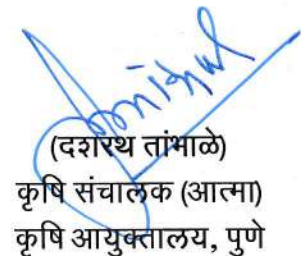 (दशरथ तांभाळे)
कृषि संचालक (आत्मा)
कृषि आयुक्तालय, पुणे